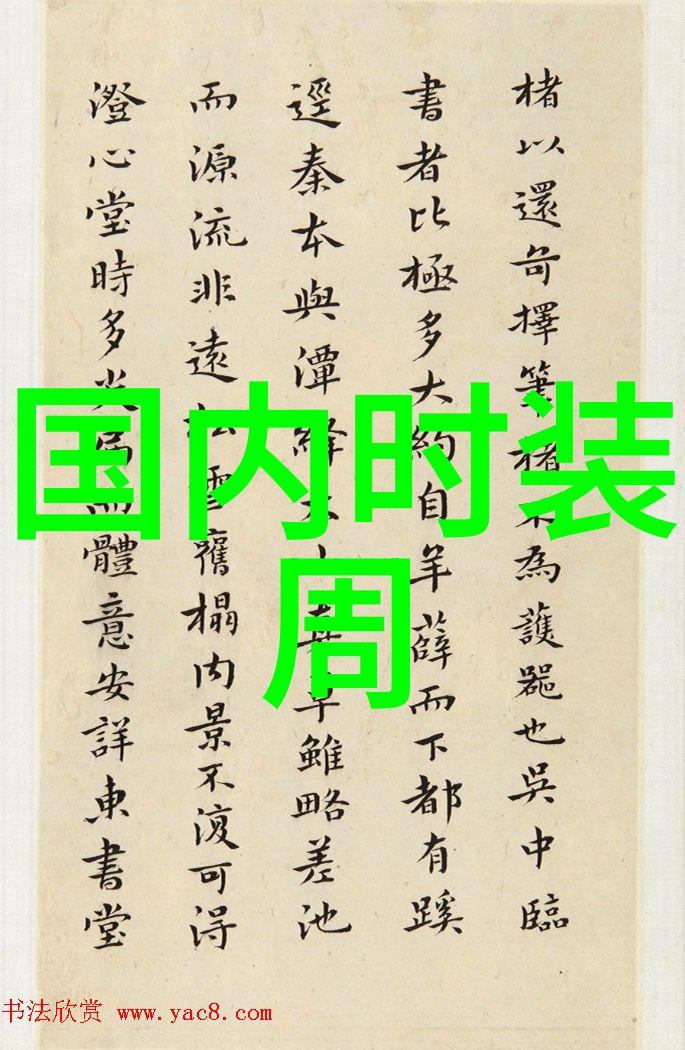 楮以還擇筆楮為護器也吳中臨
書者比極多大約自羊薛而下都有蹊
逕秦本與潭絳草雖略差池
而源流非遠松雪舊榻内景不復可得
澄心堂時多體意安詳東書堂
国内时装
周
书法欣赏 www.yac8.com